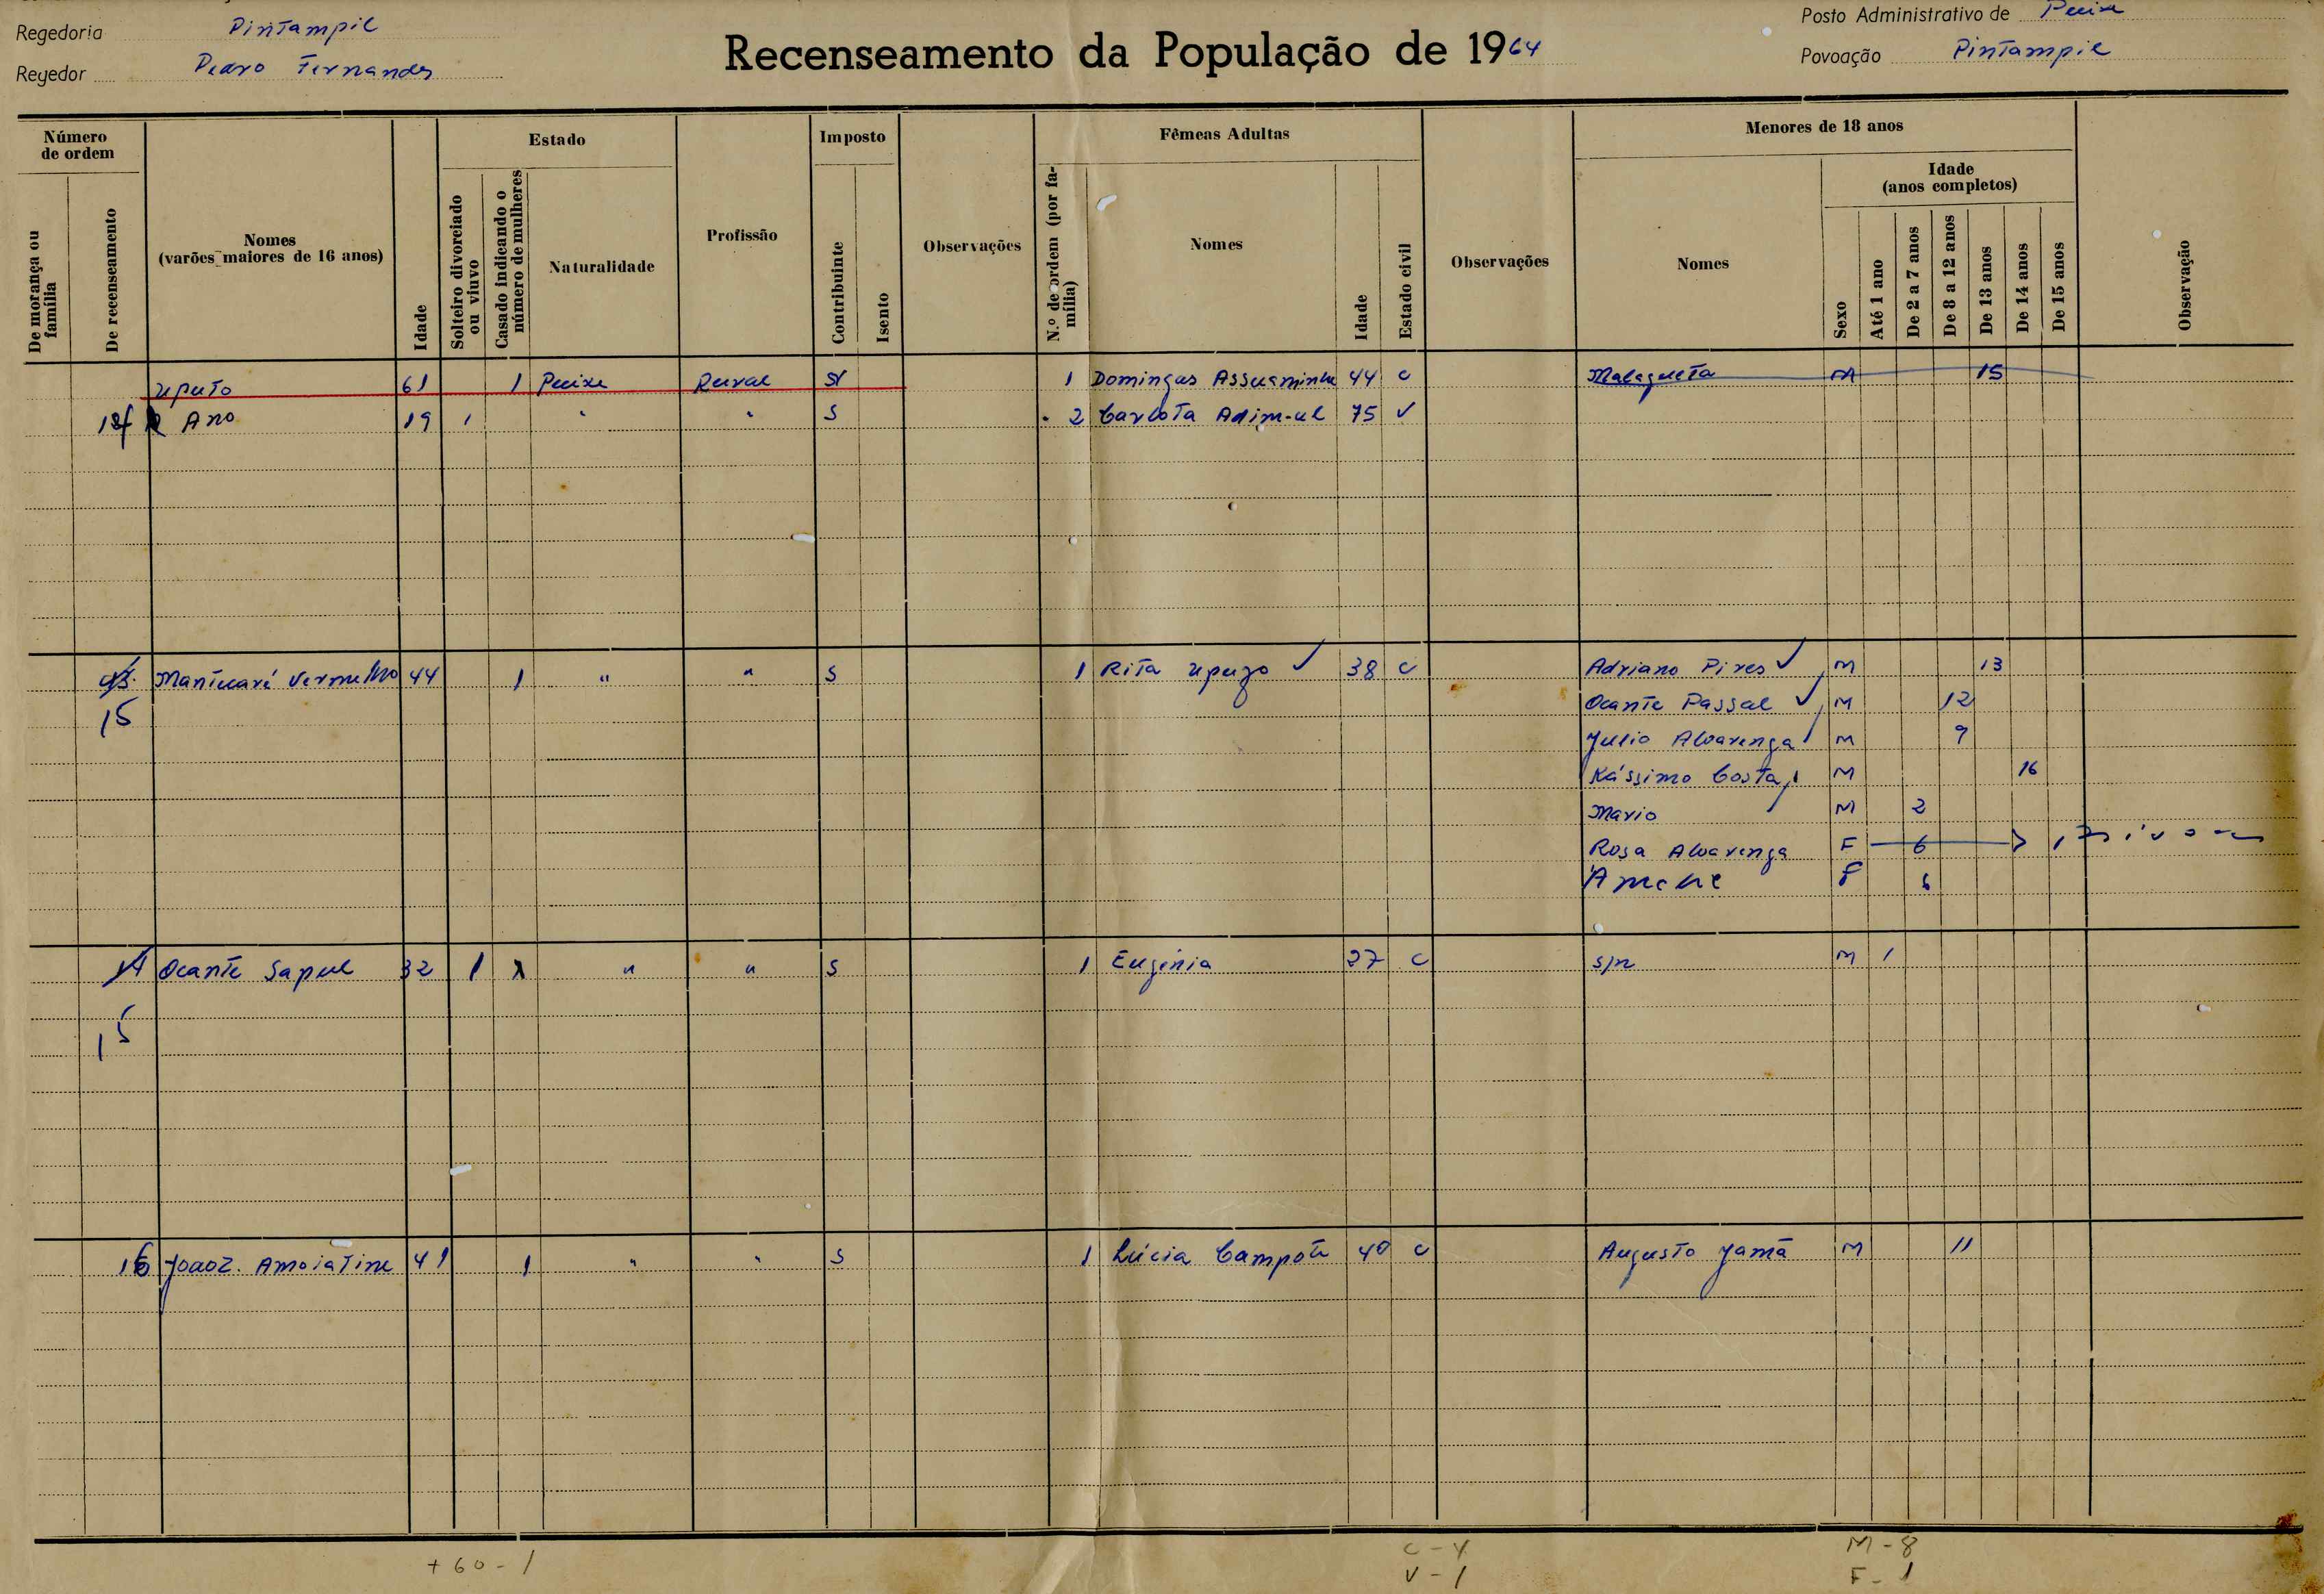 Regedoria Pintampil
Regedor Pedro Fernandes
Recenseamento da População de 1964
Posto Administrativo de Pecixe
Povoação Pintampil
Número de ordem
De morança ou família
De recenseamento
Nomes (varões maiores de 16 anos)
Idade
Estado
Solteiro divorciado ou viuvo
Casado indicando o número de mulheres
Naturalidade
Profissão
Imposto
Contribuinte
Isento
Observações
Fêmeas Adultas
N.º de ordem (por família)
Nomes
Idade
Estado civil
Observações
Menores de 18 anos
Nomes
Sexo
Idade (anos completos)
Até 1 ano
De 2 a 7 anos
De 8 a 12 anos
De 13 anos
De 14 anos
De 15 anos
Observação
Uputo 61 1 Pecixe Rural 1 Domingas Assuaminha 44 C Malagueta M 15
Ano 19 1 " " S 2 Carlota Adim-ul 75 V
13 Mantucaré Vermelho 44 1 " " S 1 Rita Upuzo ✓ 38 C Adriano Pires ✓ M 13
15 Ocante Passal ✓ M 12
Julio Alvarenga M 9
Kássimo Costa M 16
Mario M 2
Rosa Alvarenga F 6
F 6
14 Ocante Sapul 32 1 " " S 1 Eugénia 27 C s/n M 1
15
16 Joaoz. Amoiatine 41 1 " " S 1 Lúcia Campoti 40 C Augusto Jamã M 11
+60-1
C-4
V-1
M-8
F-1